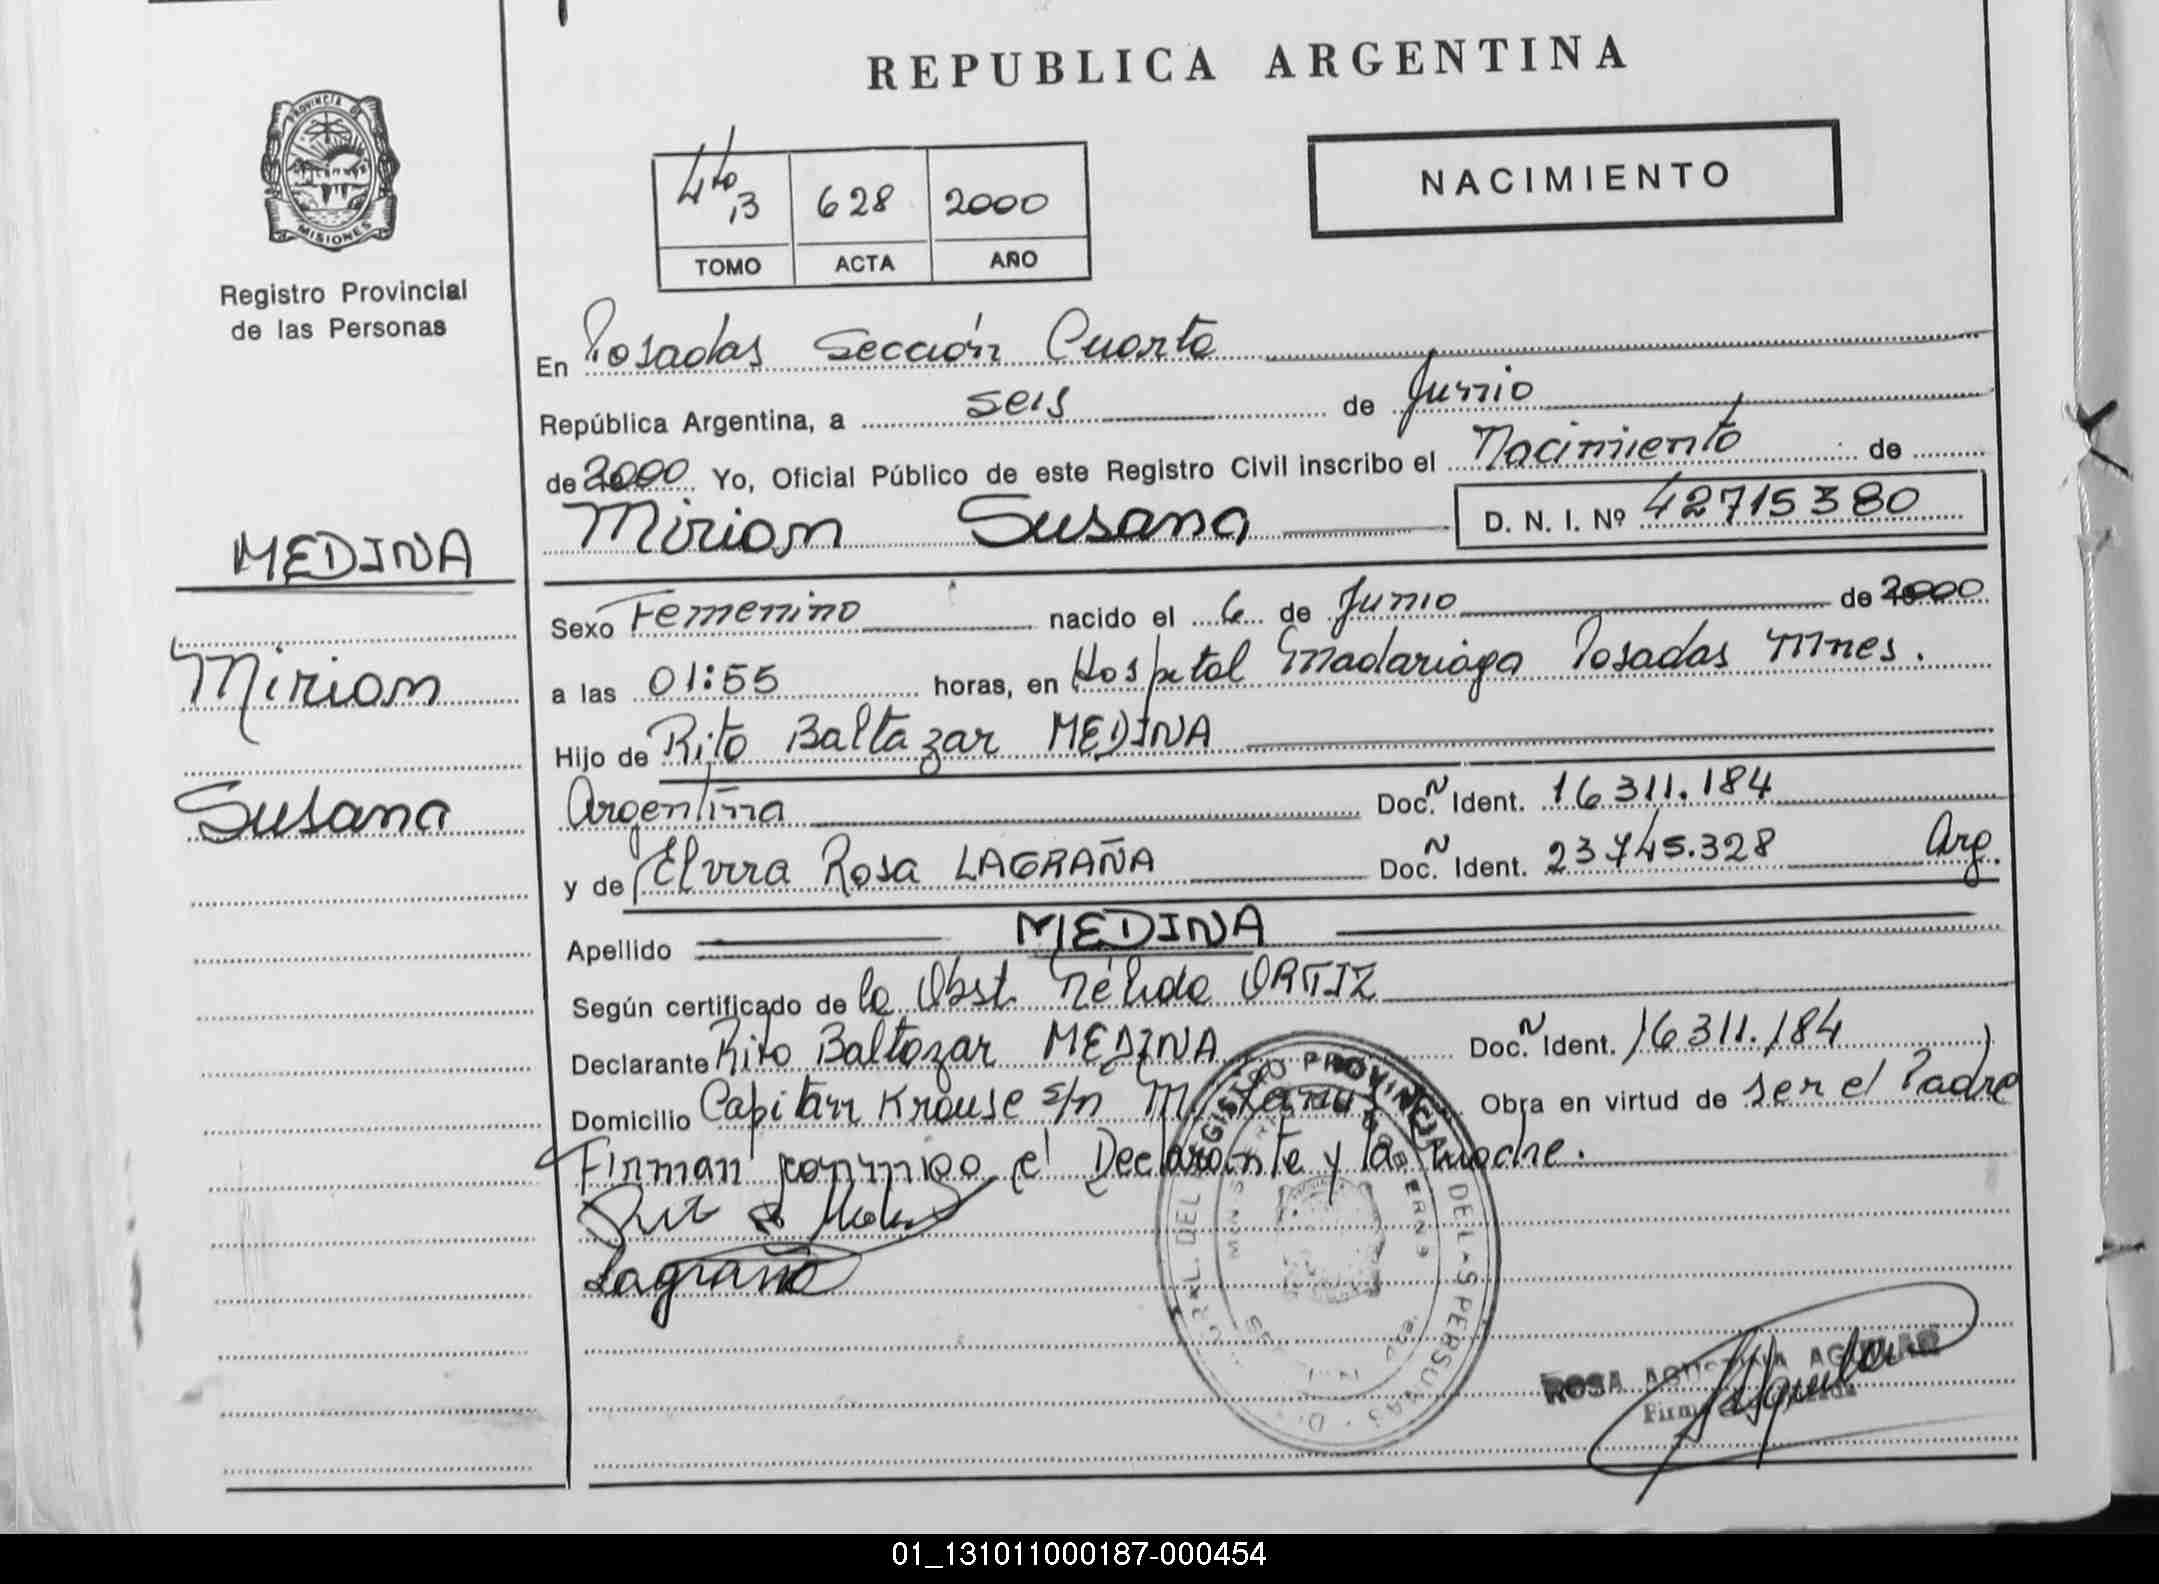 REPUBLICA ARGENTINA
PROVINCIA DE
MISIONES
Registro Provincial
de las Personas
4to 3 628 2000
TOMO ACTA AÑO
NACIMIENTO
En Posadas Sección Cuarta
República Argentina, a seis de Junio
de 2000 Yo, Oficial Público de este Registro Civil inscribo el Nacimiento de
Miriam Susana D. N. I. Nº 42715380
MEDINA
Miriam
Susana
Sexo Femenino nacido el 6 de Junio de 2000
a las 01:55 horas, en Hospital Madariaga Posadas Mnes.
Hijo de Rito Baltazar MEDINA
Argentina Doc. N Ident. 16311.184
y de Elvira Rosa LAGRAÑA Doc. N Ident. 23745.328 Arg.
Apellido MEDINA
Según certificado de la Obst. Nélida ORTIZ
Declarante Rito Baltazar MEDINA Doc. N Ident. 16311.184
Domicilio Capitan Krause s/n Obra en virtud de ser el Padre
Firman conmigo el Declarante y la Madre.
Lagraña
REGISTRO PROVINCIAL DE LAS PERSONAS
ROSA AGUSTINA AGUILAR
01_131011000187-000454